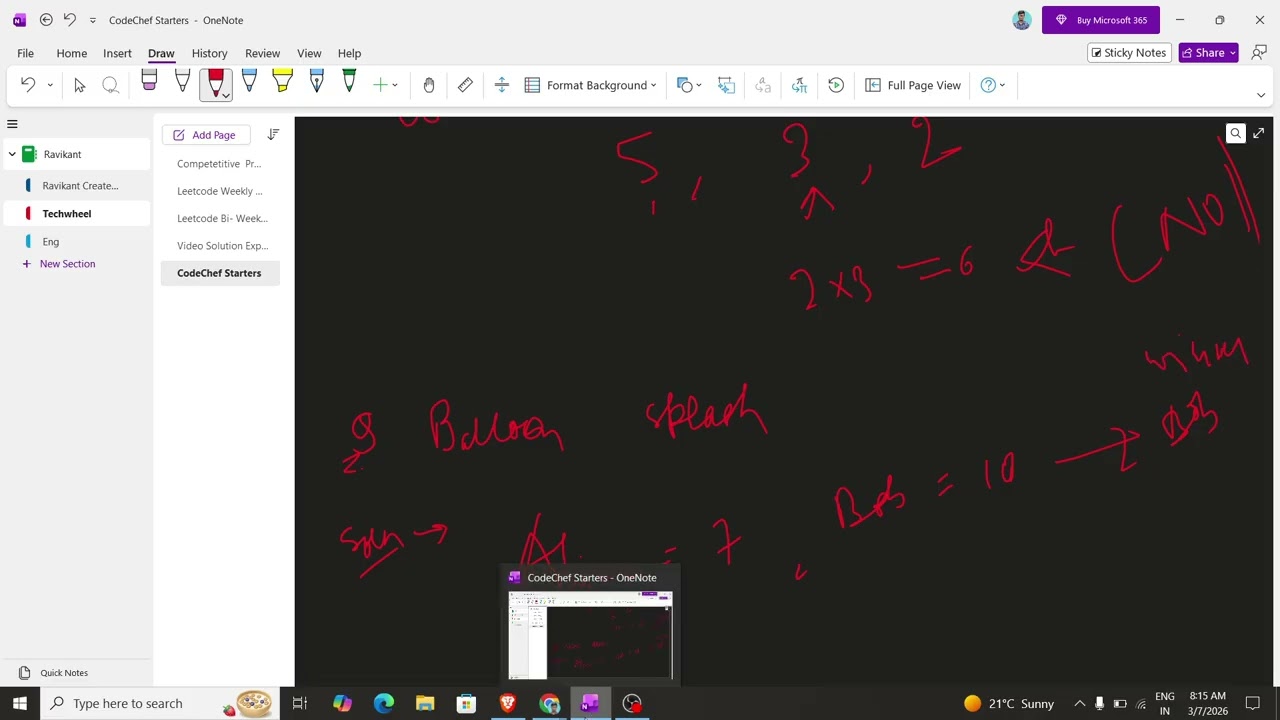 CodeChef Starters - OneNote
Buy Microsoft 365
File Home Insert Draw History Review View Help
Sticky Notes
Share
Format Background
Full Page View
Ravikant
Ravikant Create...
Techwheel
Eng
New Section
Add Page
Competetitive Pr...
Leetcode Weekly ...
Leetcode Bi- Week...
Video Solution Exp...
CodeChef Starters
5, 3, 2
2 x 3 = 6
(No)
Balloon splash
winner
Bob
Bob = 10
= 7,
CodeChef Starters - OneNote
Quick Notes
Type here to search
21°C Sunny
ENG
IN
8:15 AM
3/7/2026